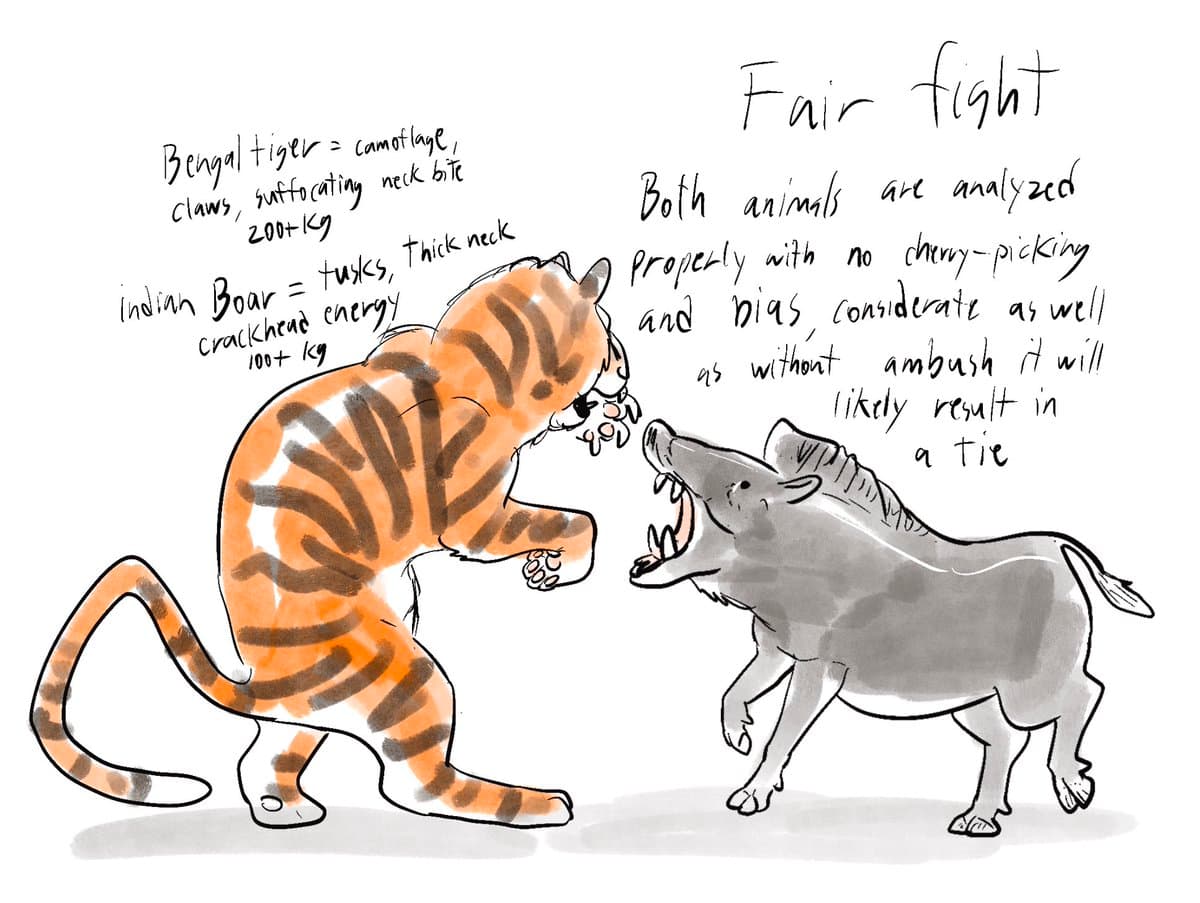 Fair fight
Bengal tiger = camoflage,
claws, suffocating neck bite
200+ kg
indian Boar = tusks, Thick neck
crackhead energy
100+ kg
Both animals are analyzed
properly with no cherry-picking
and bias, considerate as well
as without ambush it will
likely result in
a tie